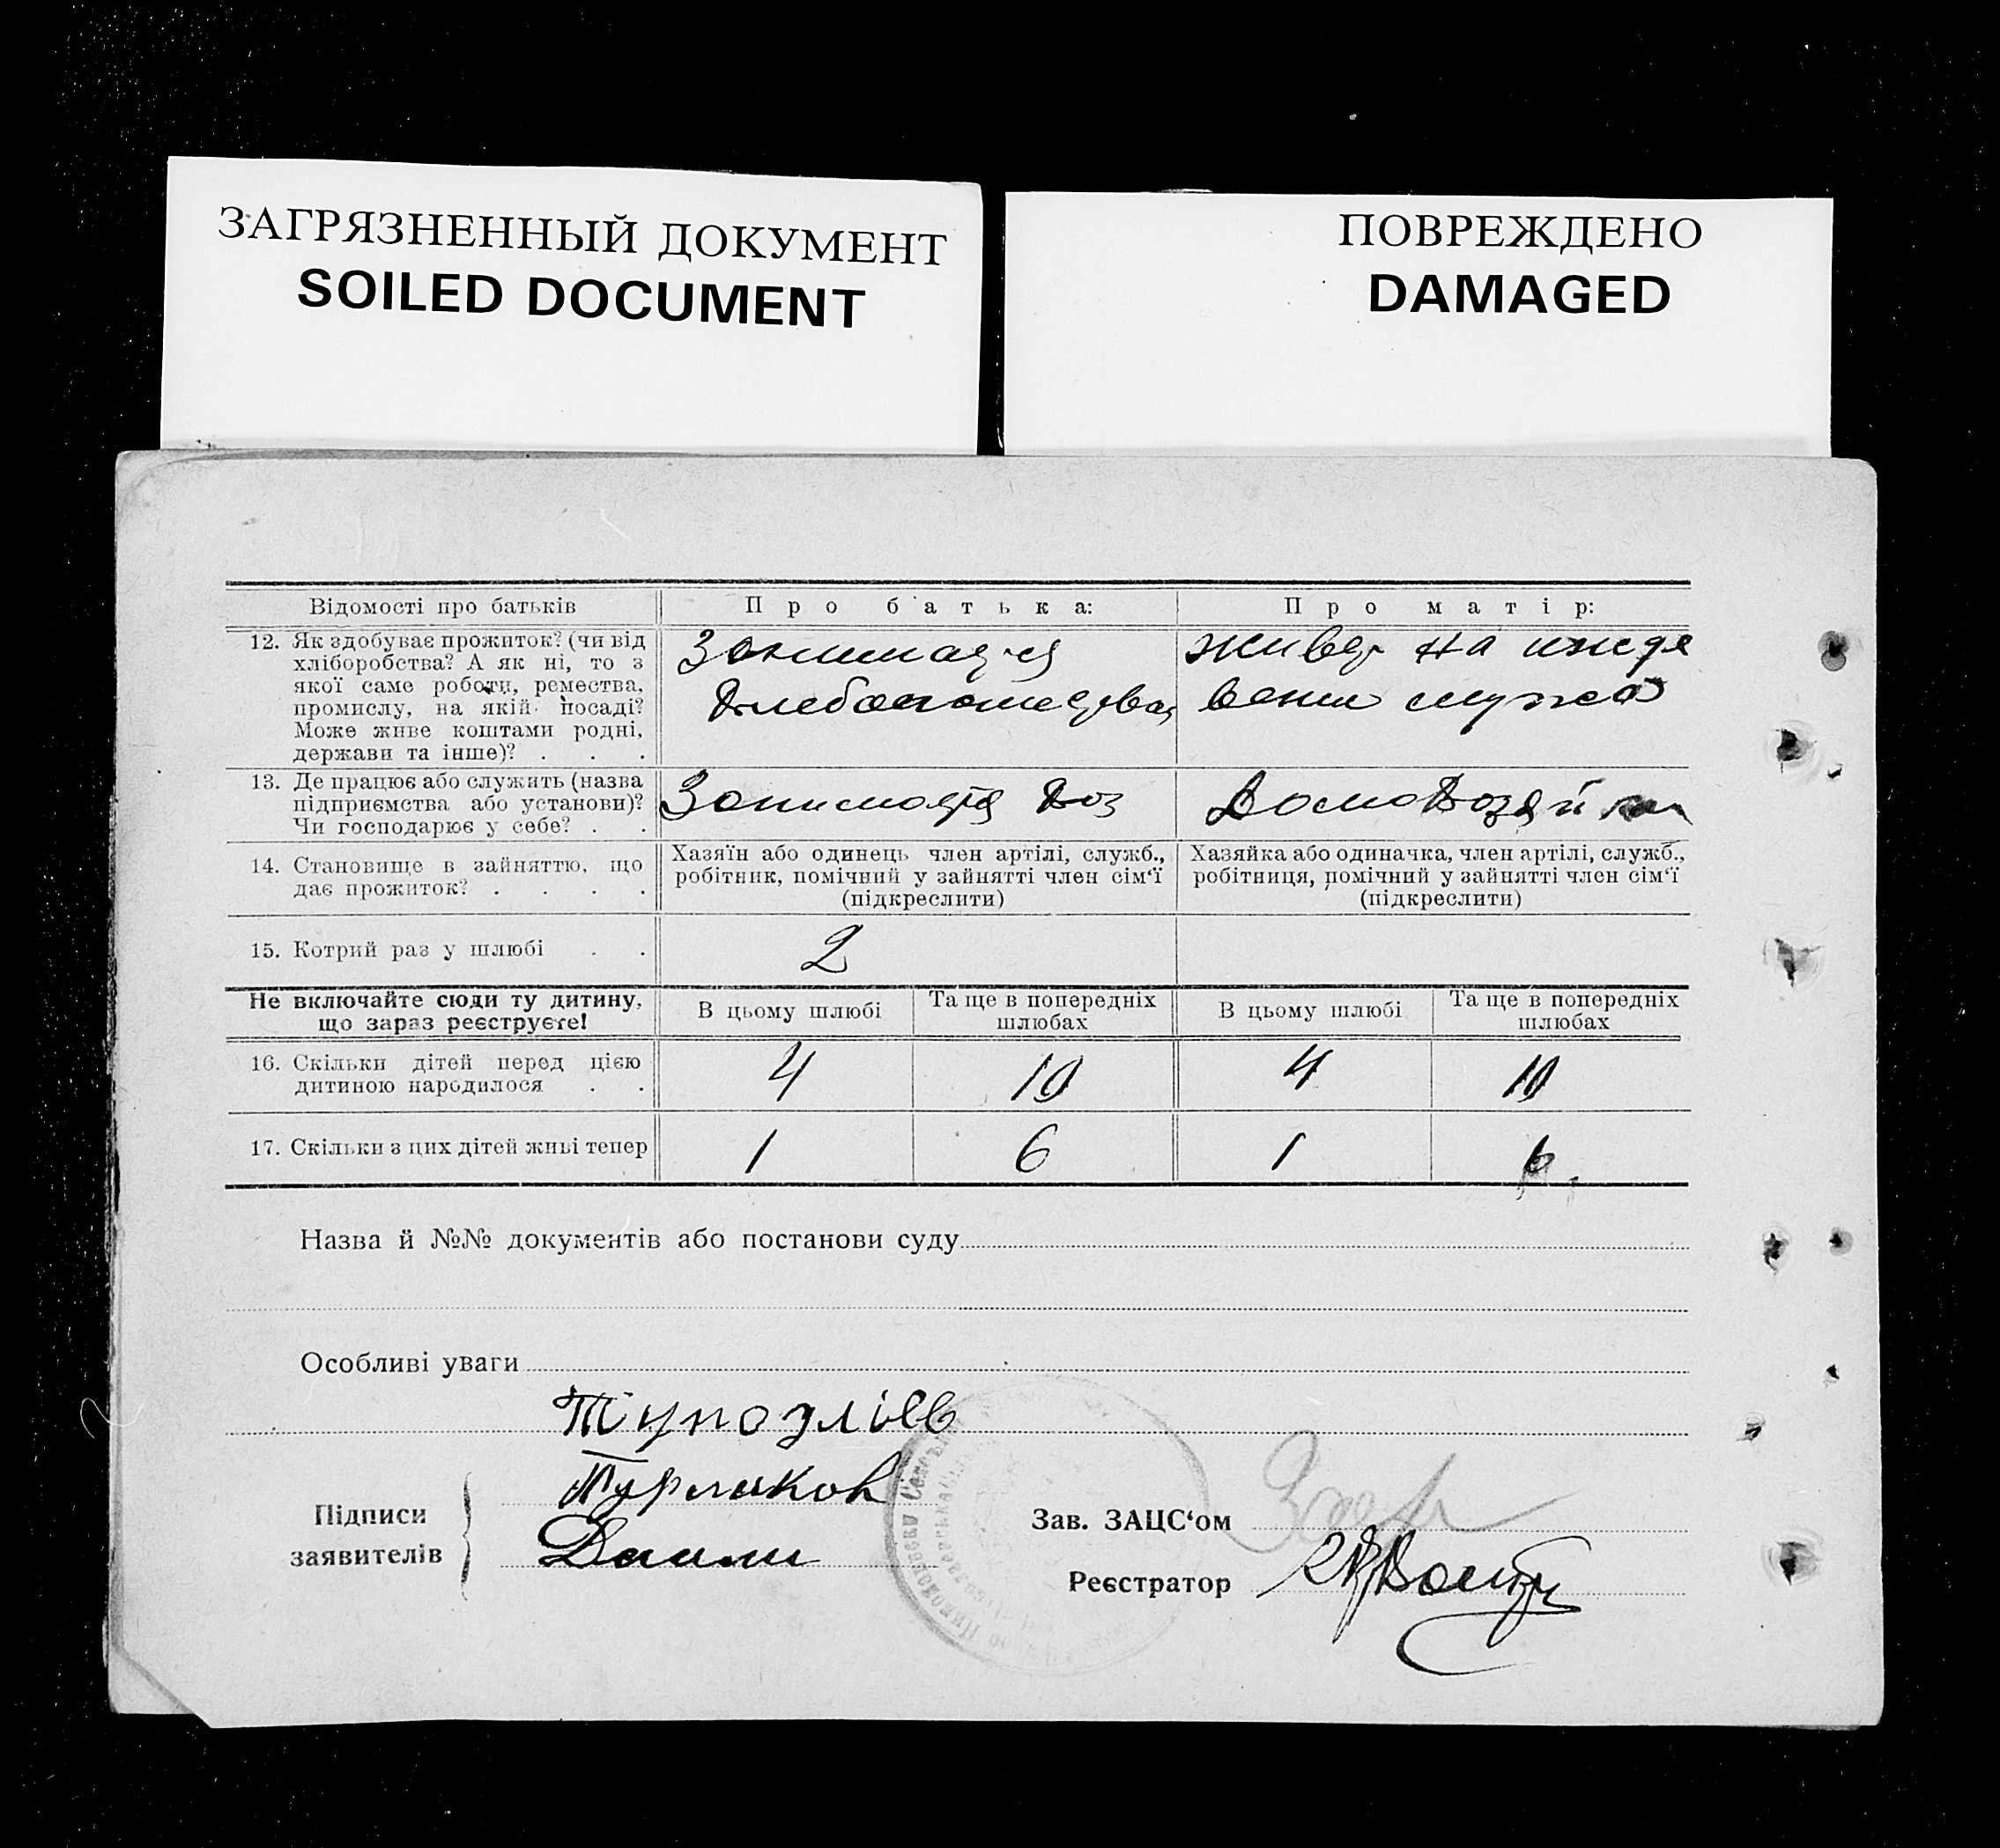 ЗАГРЯЗНЕННЫЙ ДОКУМЕНТ
SOILED DOCUMENT
ПОВРЕЖДЕНО
DAMAGED
Відомості про батьків
Про батька:
Про матір:
12. Як здобуває прожиток? (чи від
хліборобства? А як ні, то з
якої саме роботи, ремества,
промислу, на якій посаді?
Може живе коштами родні,
держави та інше)? . . .
живе на ижде
вении мужа
13. Де працює або служить (назва
підприємства або установи)?
Чи господарює у себе? . .
14. Становище в зайняттю, що
дає прожиток? . . . .
Хазяїн або одинець член артілі, служб.,
робітник, помічний у зайнятті член сім‘ї
(підкреслити)
Хазяйка або одиначка, член артілі, служб.,
робітниця, помічний у зайнятті член сім‘ї
(підкреслити)
15. Котрий раз у шлюбі . .
2
Не включайте сюди ту дитину,
що зараз реєструєте!
В цьому шлюбі
Та ще в попередніх
шлюбах
В цьому шлюбі
Та ще в попередніх
шлюбах
16. Скільки дітей перед цією
дитиною народилося . .
4
10
4
10
17. Скільки з цих дітей живі тепер
1
6
1
6
Назва й №№ документів або постанови суду
Особливі уваги
Підписи
заявителів
Зав. ЗАЦС‘ом
Реєстратор